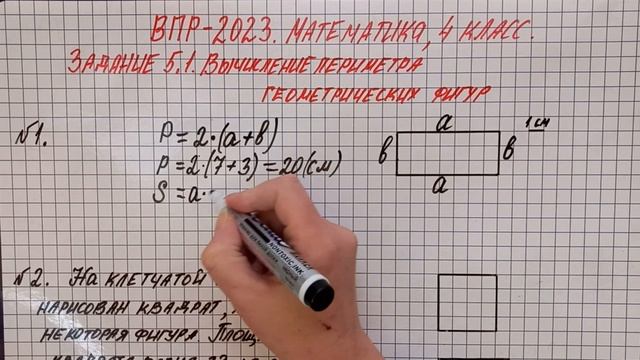 ВПР-2023. МАТЕМАТИКА, 4 КЛАСС.
ЗАДАНИЕ 5.1. ВЫЧИСЛЕНИЕ ПЕРИМЕТРА
ГЕОМЕТРИЧЕСКИХ ФИГУР
№1.
P = 2·(a+b)
P = 2·(7+3) = 20(см)
S = a·
a
1 см
b
b
a
№2. НА КЛЕТЧАТОЙ
НАРИСОВАН КВАДРАТ,
НЕКОТОРАЯ ФИГУРА.
NONTOXIC INK